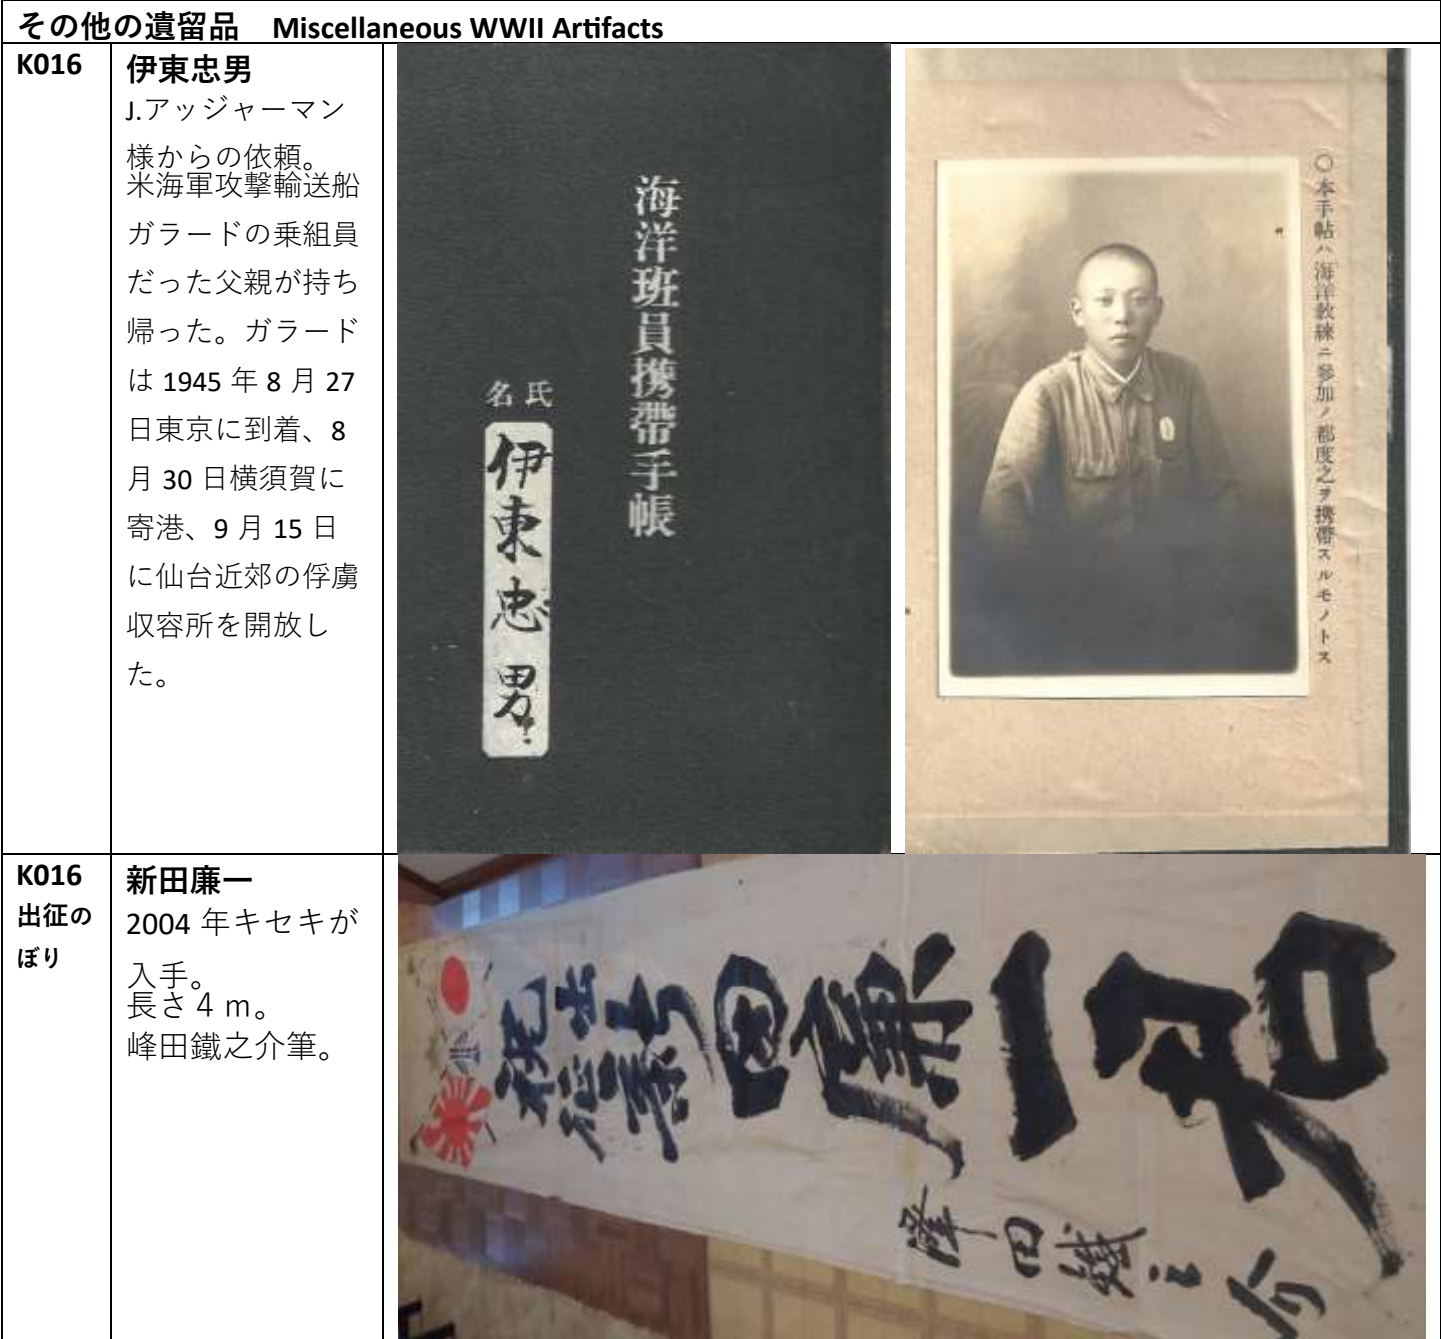 その他の遺留品 Miscellaneous WWII Artifacts
K016
伊東忠男
J.アッジャーマン
様からの依頼。
米海軍攻撃輸送船
ガラードの乗組員
だった父親が持ち
帰った。ガラード
は 1945 年 8 月 27
日東京に到着、8
月 30 日横須賀に
寄港、9 月 15 日
に仙台近郊の俘虜
収容所を開放し
た。
海洋班員携帶手帳
氏名
伊東忠男
〇本手帖ハ海洋教練ニ參加ノ都度之ヲ携帶スルモノトス
K016
出征の
ぼり
新田廉一
2004 年キセキが
入手。
長さ 4 m。
峰田鐵之介筆。
祝出征
新田廉一君
峰田鐵之介